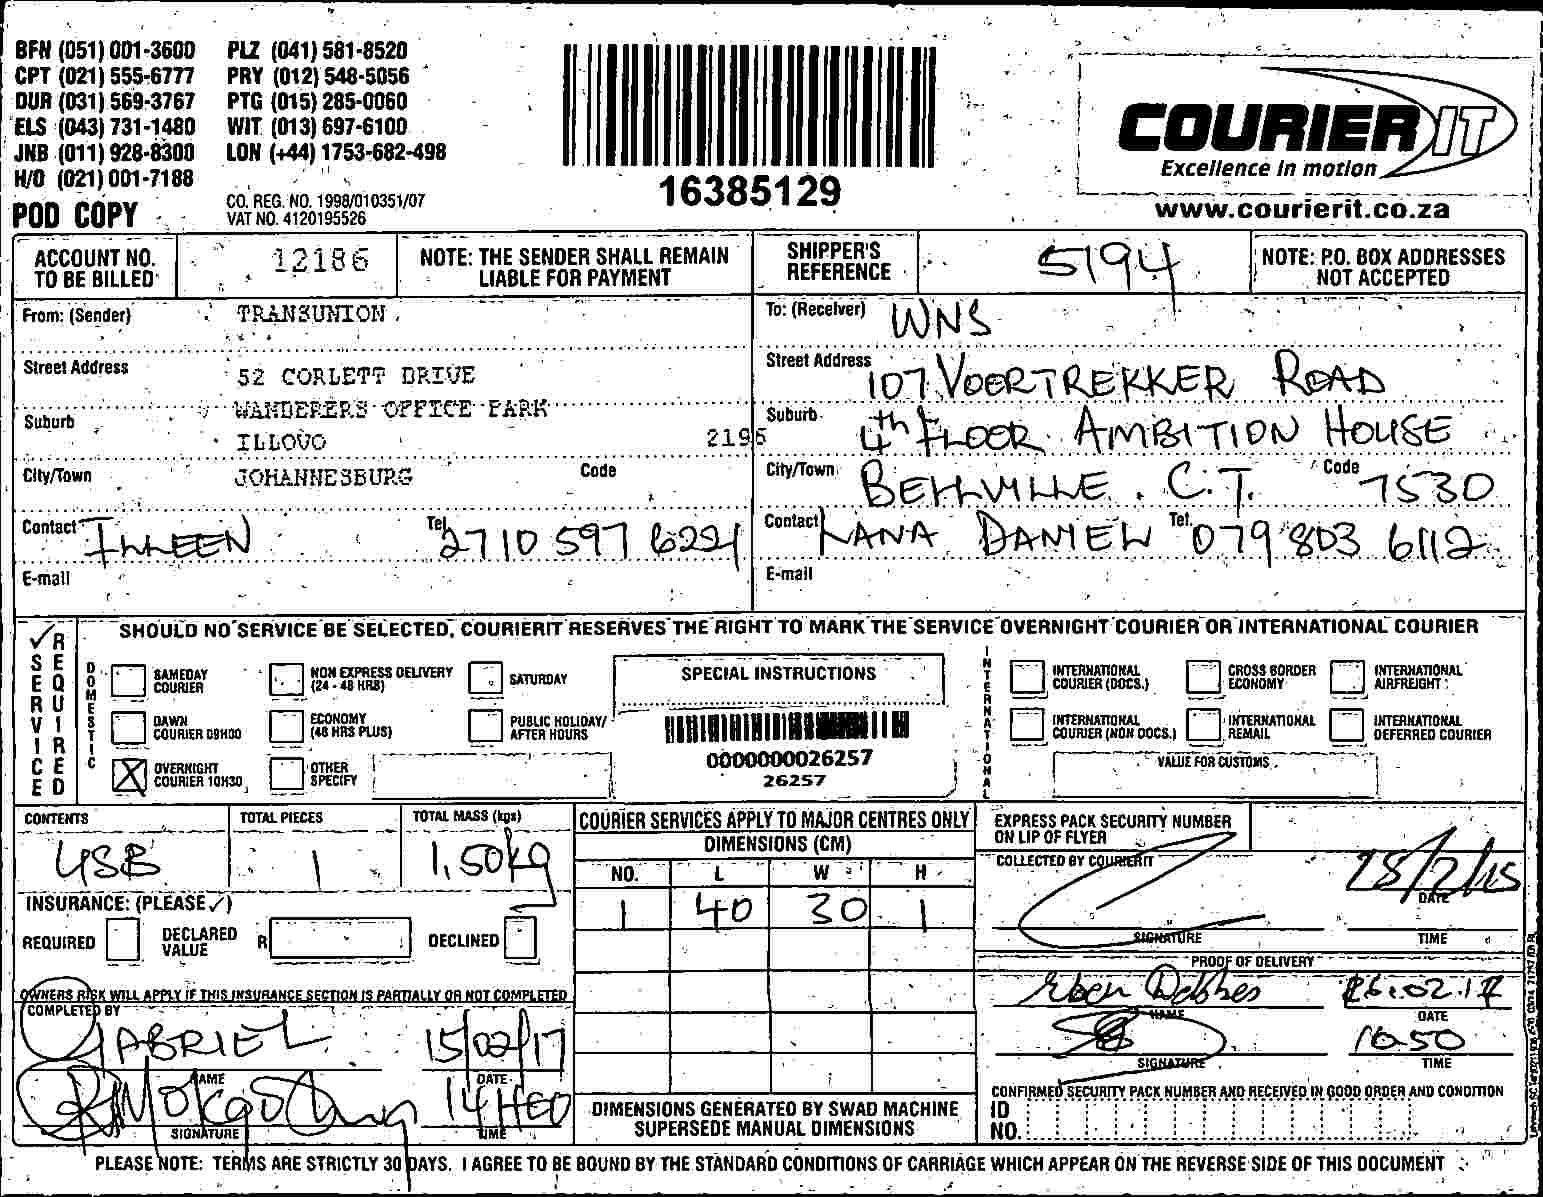 BFN (051) 001-3600 PLZ (041) 581-8520
CPT (021) 555-6777 PRY (012) 548-5056
DUR (031) 569-3767 PTG (015) 285-0060
ELS (043) 731-1480 WIT (013) 697-6100
JNB (011) 928-8300 LON (+44) 1753-682-498
H/O (021) 001-7188
CO. REG. NO. 1998/010351/07
POD COPY VAT NO. 4120195526
16385129
COURIER IT
Excellence in motion
www.courierit.co.za
ACCOUNT NO. TO BE BILLED 12186
NOTE: THE SENDER SHALL REMAIN LIABLE FOR PAYMENT
SHIPPER'S REFERENCE 5194
NOTE: P.O. BOX ADDRESSES NOT ACCEPTED
From: (Sender) TRANSUNION
Street Address 52 CORLETT DRIVE
WANDERERS OFFICE PARK
Suburb ILLOVO 2196
City/Town JOHANNESBURG Code
Contact ILLEEN Tel. 2710 597 6221
E-mail
To: (Receiver) WNS
Street Address 107 VOORTREKKER ROAD
Suburb 4th FLOOR AMBITION HOUSE
City/Town BELLVILLE. C.T. Code 7530
Contact LANA DANIEL Tel. 079 803 6112
E-mail
✓ SERVICE REQUIRED
SHOULD NO SERVICE BE SELECTED, COURIERIT RESERVES THE RIGHT TO MARK THE SERVICE OVERNIGHT COURIER OR INTERNATIONAL COURIER
DOMESTIC
SAMEDAY COURIER
NON EXPRESS DELIVERY (24 - 48 HRS)
SATURDAY
DAWN COURIER 09H00
ECONOMY (48 HRS PLUS)
PUBLIC HOLIDAY/ AFTER HOURS
X OVERNIGHT COURIER 10H30
OTHER SPECIFY
SPECIAL INSTRUCTIONS
0000000026257
26257
INTERNATIONAL
INTERNATIONAL COURIER (DOCS.)
CROSS BORDER ECONOMY
INTERNATIONAL AIRFREIGHT
INTERNATIONAL COURIER (NON DOCS.)
INTERNATIONAL REMAIL
INTERNATIONAL DEFERRED COURIER
VALUE FOR CUSTOMS
CONTENTS USB
TOTAL PIECES 1
TOTAL MASS (kgs) 1.50kg
INSURANCE: (PLEASE ✓)
REQUIRED DECLARED VALUE R DECLINED
OWNERS RISK WILL APPLY IF THIS INSURANCE SECTION IS PARTIALLY OR NOT COMPLETED
COMPLETED BY
GABRIEL 15/02/17
NAME DATE
14H00
SIGNATURE TIME
COURIER SERVICES APPLY TO MAJOR CENTRES ONLY
DIMENSIONS (CM)
NO. L W H
1 40 30 1
DIMENSIONS GENERATED BY SWAD MACHINE
SUPERSEDE MANUAL DIMENSIONS
EXPRESS PACK SECURITY NUMBER
ON LIP OF FLYER
COLLECTED BY COURIERIT
DATE
SIGNATURE TIME
PROOF OF DELIVERY
NAME DATE
10:50
SIGNATURE TIME
CONFIRMED SECURITY PACK NUMBER AND RECEIVED IN GOOD ORDER AND CONDITION
ID NO.
PLEASE NOTE: TERMS ARE STRICTLY 30 DAYS. I AGREE TO BE BOUND BY THE STANDARD CONDITIONS OF CARRIAGE WHICH APPEAR ON THE REVERSE SIDE OF THIS DOCUMENT